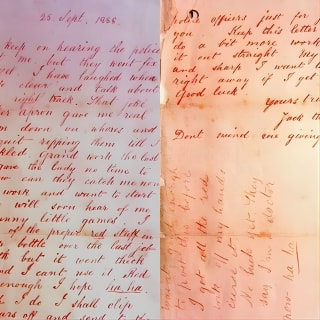 25 Sept. 1888.
keep on hearing the police
me but they wont fix
yet. I have laughed when
so clever and talk about
right track. That joke
er apron gave me real
am down on whores and
quit ripping them till I
kled. Grand work the last
gave the lady no time to
ow can they catch me now
work and want to start
will soon hear of me
unny little games. I
of the proper red stuff in
bottle over the last job
th but it went thick
and I cant use it. Red
enough I hope ha. ha.
I do I shall clip
ars off and send to the
police officers just for j
you Keep this letter
do a bit more work
it out straight My
and sharp I want t
right away if I get
Good luck
Yours tru
Jack th
Dont mind me giving
to post this before
I got all the red
ink off my hands
curse it
No luck yet. They
say I'm a doctor
now ha ha